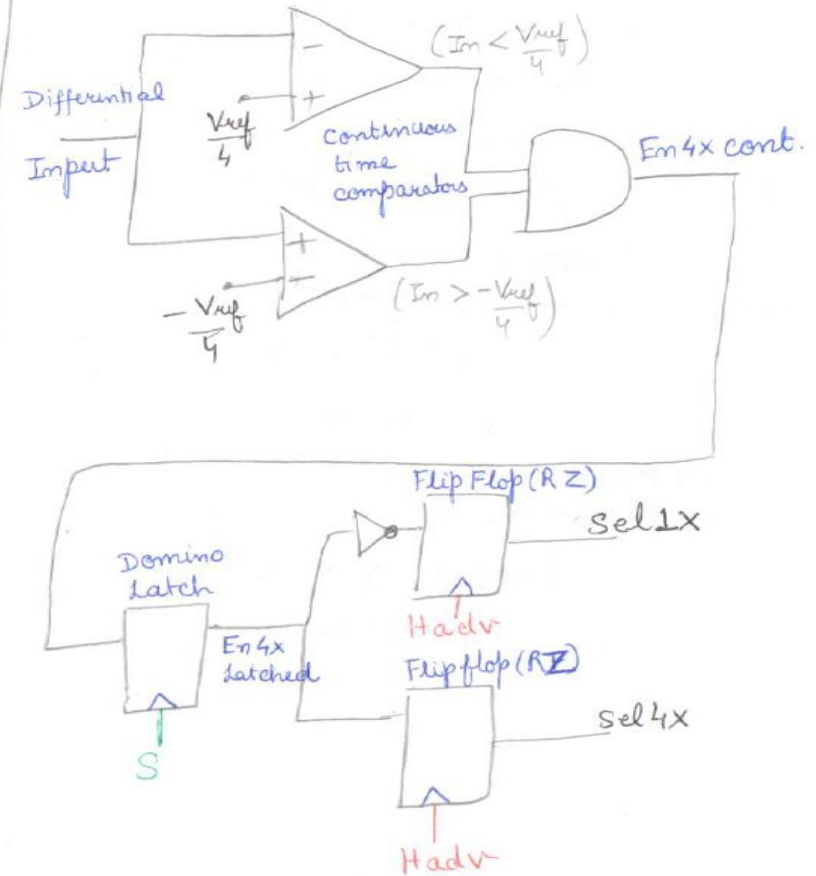 (In < Vref/4)
Differential
Inpert
−
+
Vref/4
continuous
time
comparators
En 4x cont.
+
−
− Vref/4
(In > −Vref/4)
Flip Flop (RZ)
Sel 1X
Domino
Latch
Hadv
En 4x
Latched
Flipflop (RZ)
Sel 4x
S
Hadv